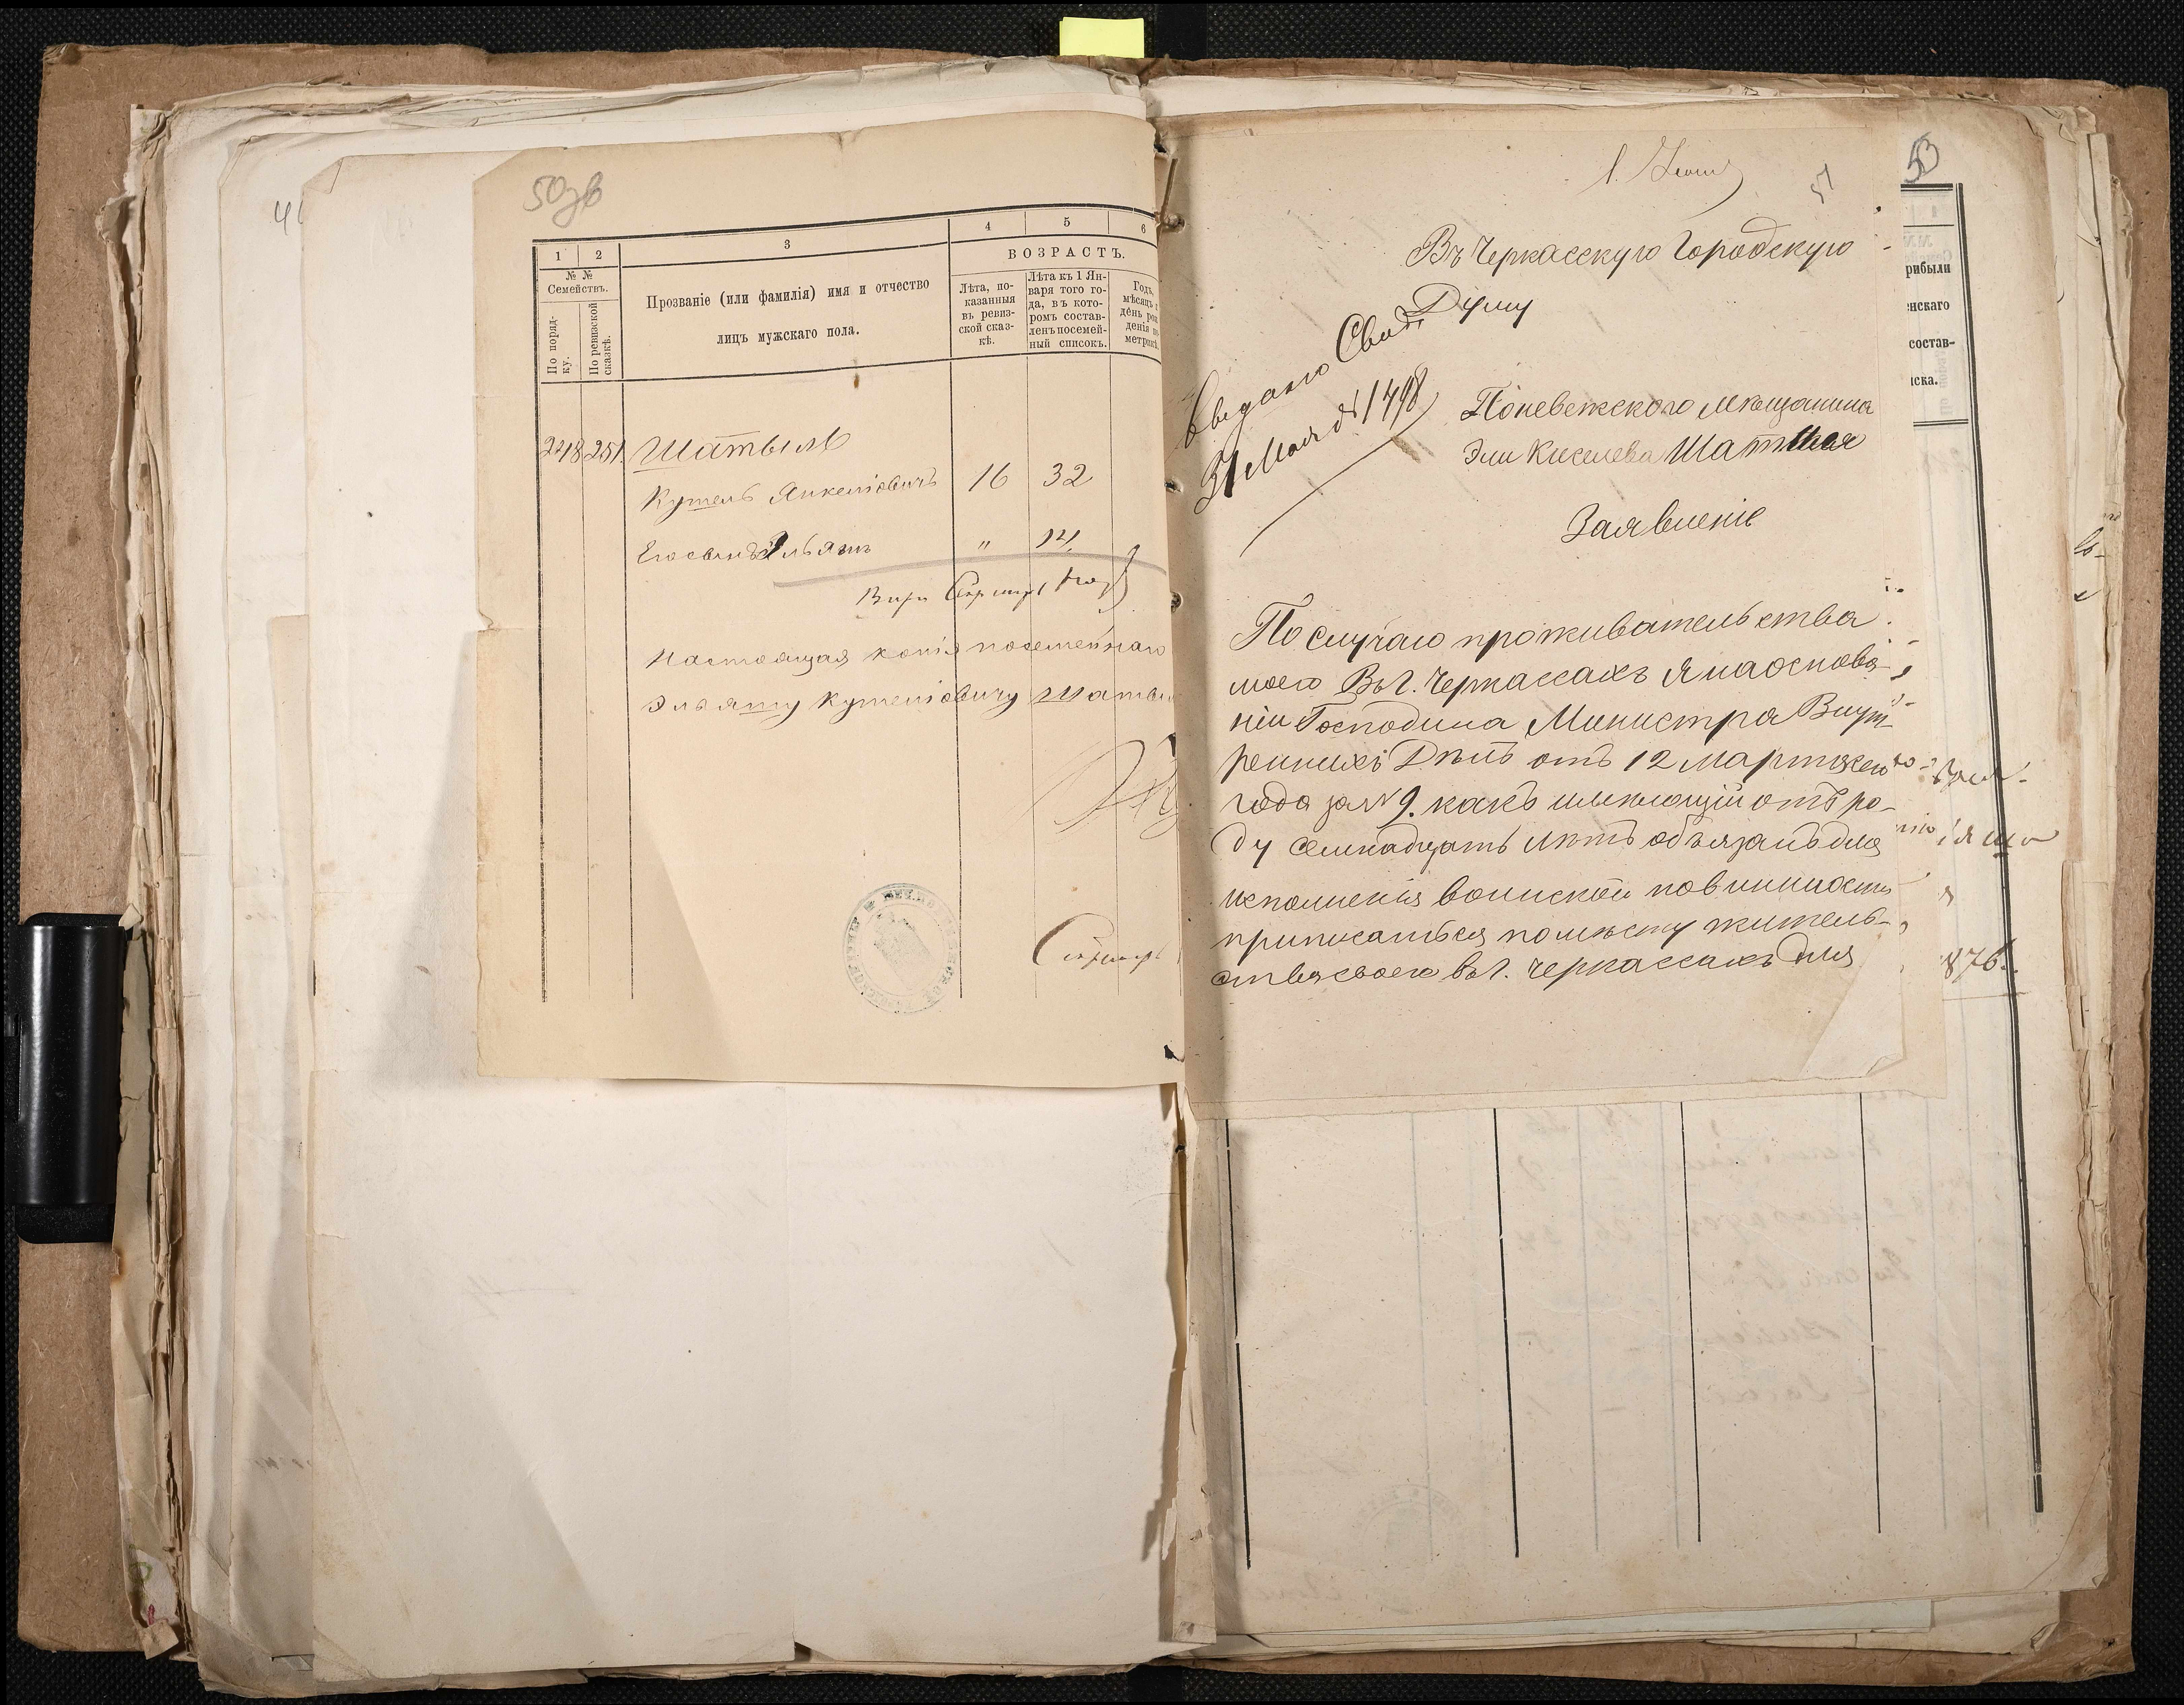 50зв
1 2 3 4 5 6
ВОЗРАСТЪ.
№ №
Семействъ.
По поряд-
ку.
По ревизской
сказкѣ.
Прозваніе (или фамилія) имя и отчество
лицъ мужскаго пола.
Лѣта, по-
казанныя
въ ревиз-
ской сказ-
кѣ.
Лѣта къ 1 Ян-
варя того го-
да, въ кото-
ромъ состав-
ленъ посемей-
ный списокъ.
Годъ,
мѣсяцъ
день рож
денія по
метрикѣ
248 251. Шатыль
Кушель Янкеліовичъ 16 32
Его сынъ Эльяшъ " 14
Настоящая копія посемейнаго
Эльяшу Кушеліовичу Шатыл
51
Въ Черкасскую Городскую
Думу
Выдано Свид.
31 Мая № 1798
Поневежского мѣщанина
Эли Киселева Шатыля
Заявленіе
По случаю проживательства
моего Въ г. Черкассахъ я на основа-
ніи Господина Министра Внут-
реннихъ Дѣлъ отъ 12 марта сего
года за № 9. какъ имеющій отъ ро-
ду семнадцать лѣтъ обѣязанъ для
исполненія воинской повинности
приписаться по мѣсту житель-
ства своего въ г. Черкассахъ для
53
рибыли
енскаго
состав-
иска.
876.